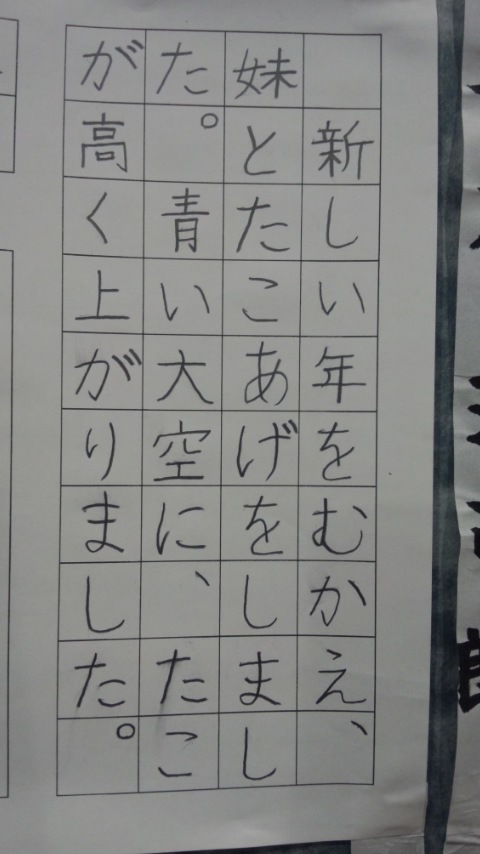 新しい年をむかえ、
妹とたこあげをしまし
た。青い大空に、たこ
が高く上がりました。